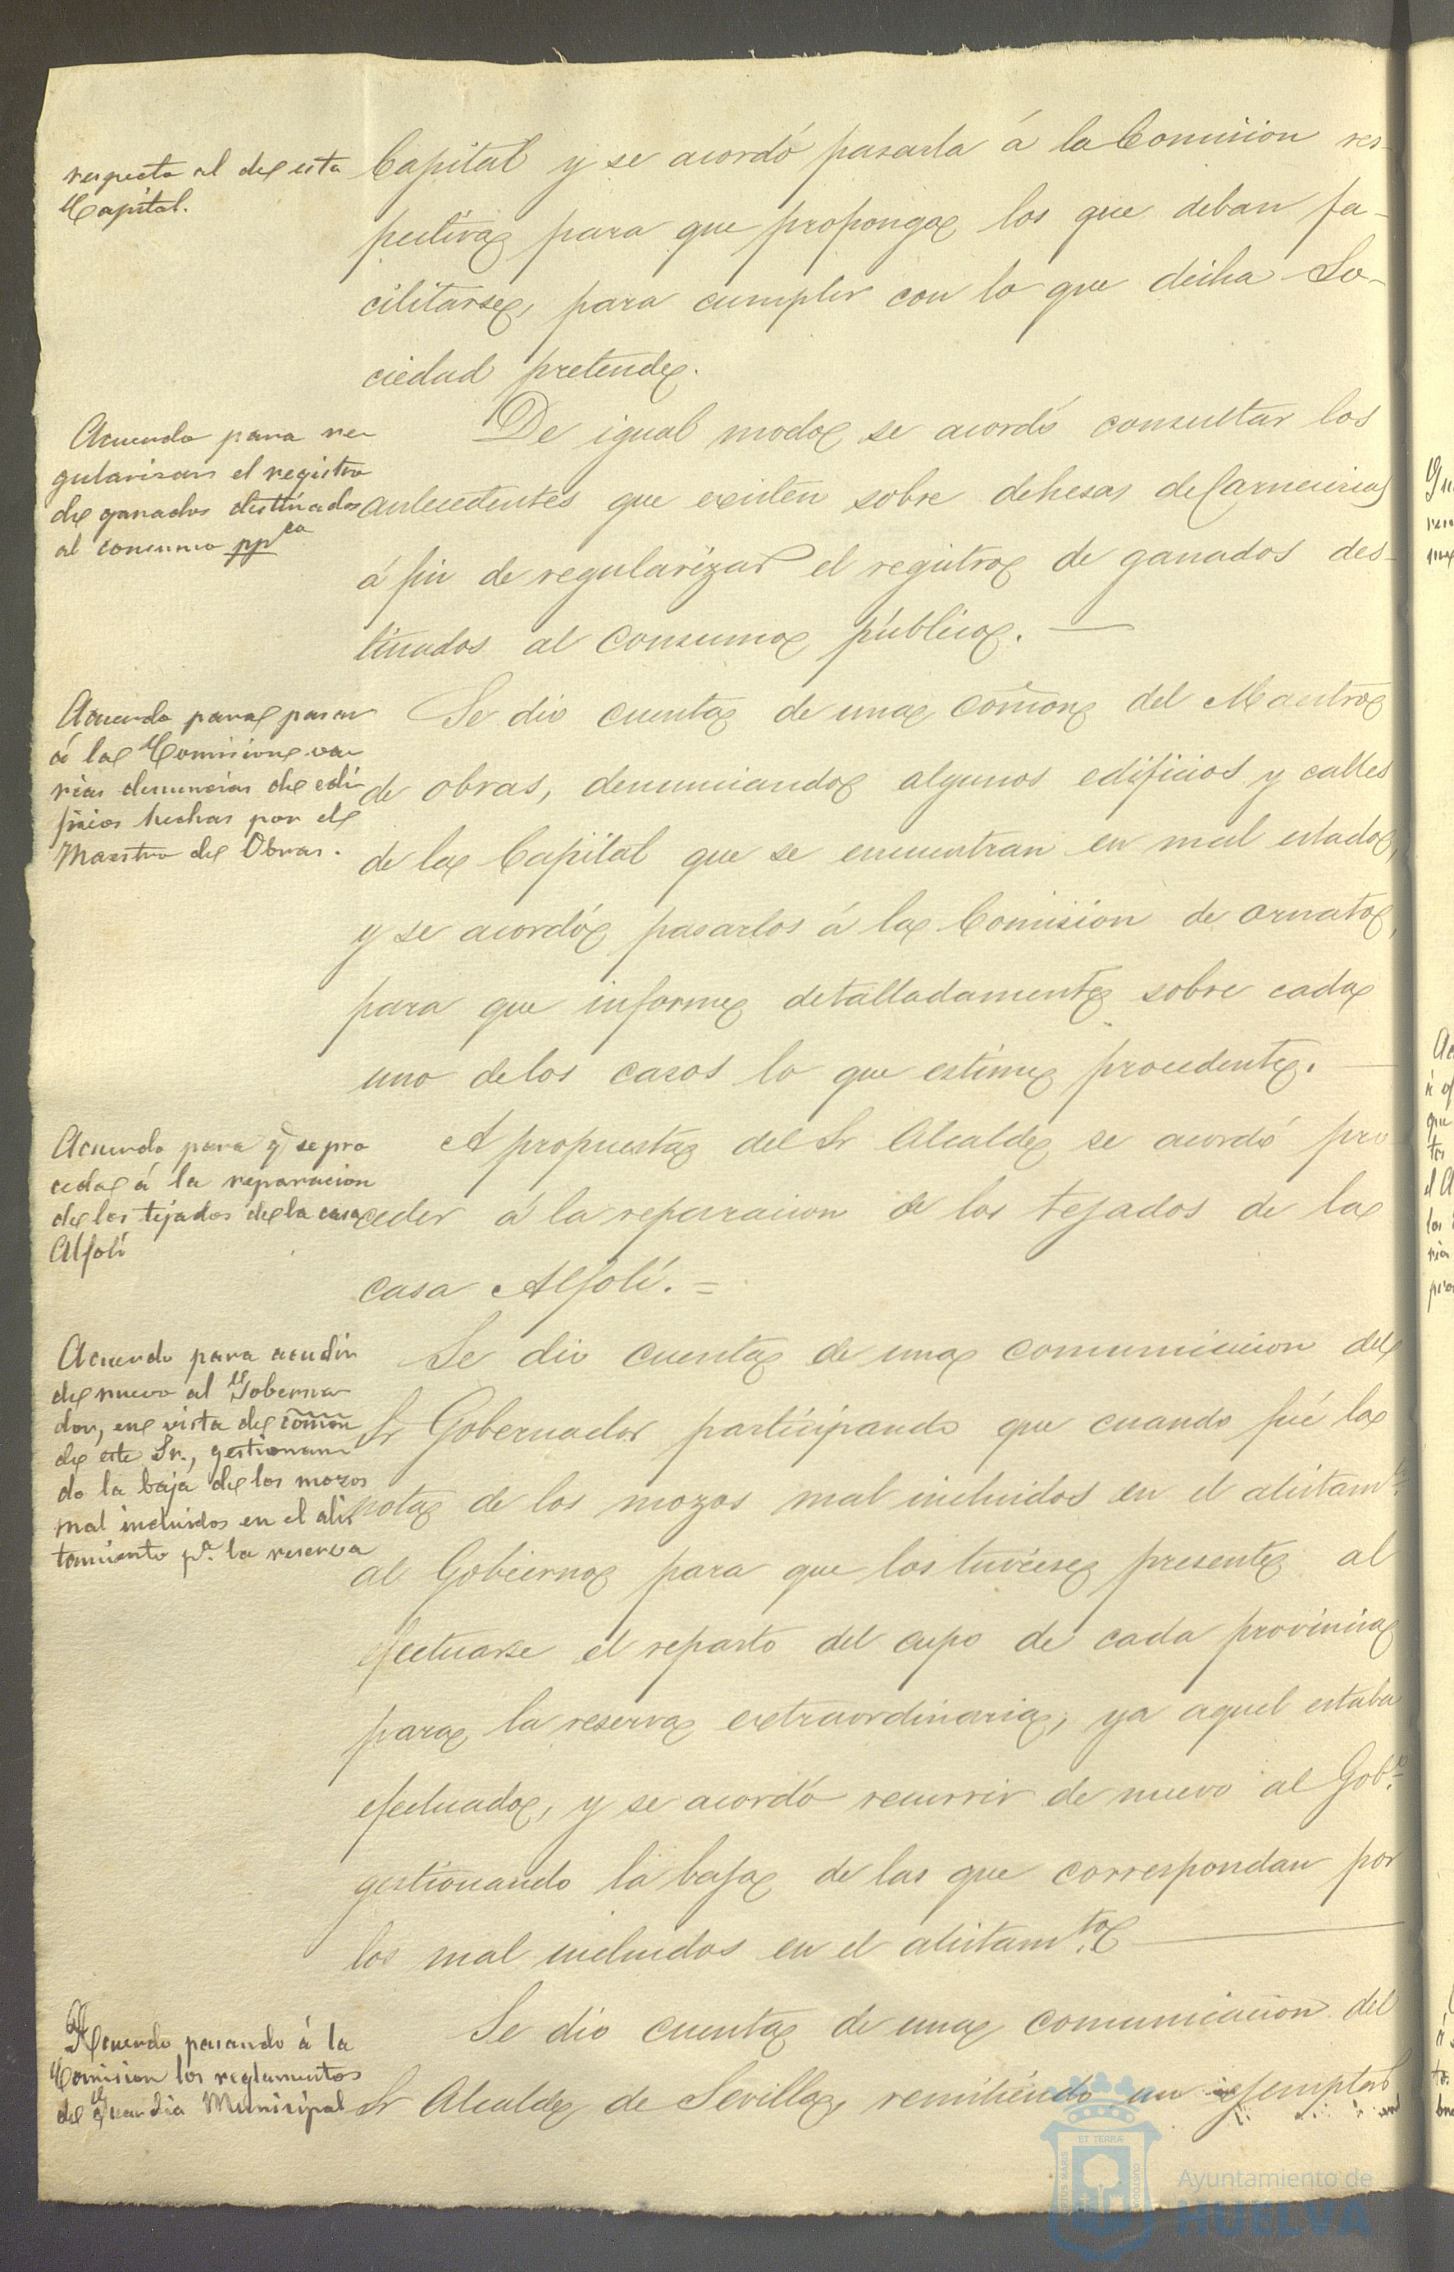 respecto al de esta
Capital.
Capital y se acordó pasarla á la Comision res-
pectiva para que proponga los que deban fa-
cilitarse, para cumplir con lo que dicha So-
ciedad pretende.
Acuerdo para re-
gularisar el registro
de ganados destinados
al consumo ppco
De igual modo se acordó consultar los
antecedentes que existen sobre dehesas de Carnecerias
á fin de regularizar el registro de ganados des-
tinados al consumo público. —
Acuerdo para pasar
á la Comision va-
rias denuncias de edi-
ficios hechas por el
Maestro de Obras.
Se dio cuenta de una comon del Maestro
de obras, denunciando algunos edificios y calles
de la Capital que se encuentran en mal estado,
y se acordó pasarlos á la Comision de ornato,
para que informe detalladamente sobre cada
uno de los casos lo que estime procedente. —
Acuerdo para q se pro
ceda á la reparacion
de los tejados de la casa
Alfolí
A propuesta del Sr Alcalde se acordó pro
ceder á la reparacion de los tejados de la
casa Alfolí. =
Acuerdo para acudir
de nuevo al Goberna-
dor, en vista de comon
de este Sr., gestionan-
do la baja de los mozos
mal incluidos en el alis
tamiento pa. la reserva
Se dio cuenta de una comunicacion del
Sr Gobernador participando que cuando fué la
nota de los mozos mal incluidos en el alistamto.
al Gobierno para que los tuviese presente al
efectuarse el reparto del cupo de cada provincia
para la reserva extraordinaria, ya aquel estaba
efectuado, y se acordó recurrir de nuevo al Gobo.
gestionando la baja de las que correspondan por
los mal incluidos en el alistamto. —
Acuerdo pasando á la
Comision los reglamentos
de Guardia Municipal
Se dio cuenta de una comunicacion del
Sr Alcalde de Sevilla, remitiendo un ejemplar
ET TERRÆ
Ayuntamiento de
HUELVA